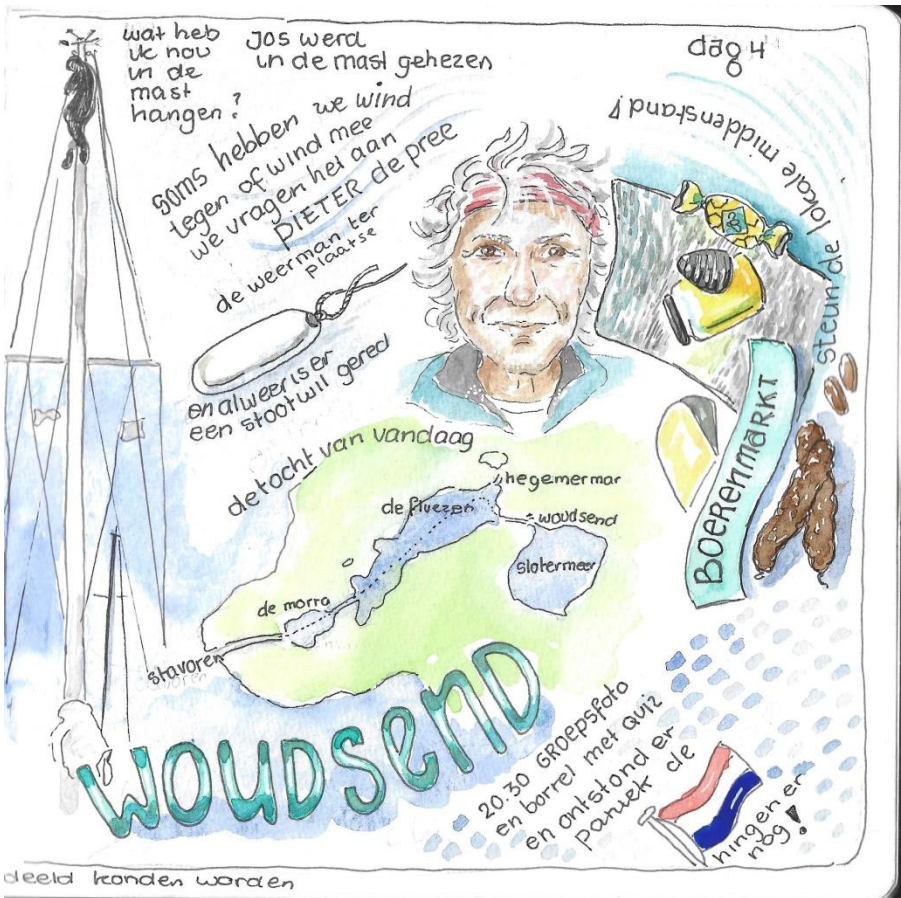 wat heb
ik nou
in de
mast
hangen?
Jos werd
in de mast gehezen
dag 4
soms hebben we wind
tegen of wind mee
we vragen het aan
PIETER de pree
de weerman ter
plaatse
steun de lokale middenstand!
en alweer is er
een stootwil gered
BOERENMARKT
de tocht van vandaag
hegemermar
de fluezen
woudsend
slotermeer
de morra
stavoren
WOUDSEND
20.30 GROEPSFOTO
en borrel met quiz
en ontstond er
paniek de
hingen er
nog!
deeld konden worden